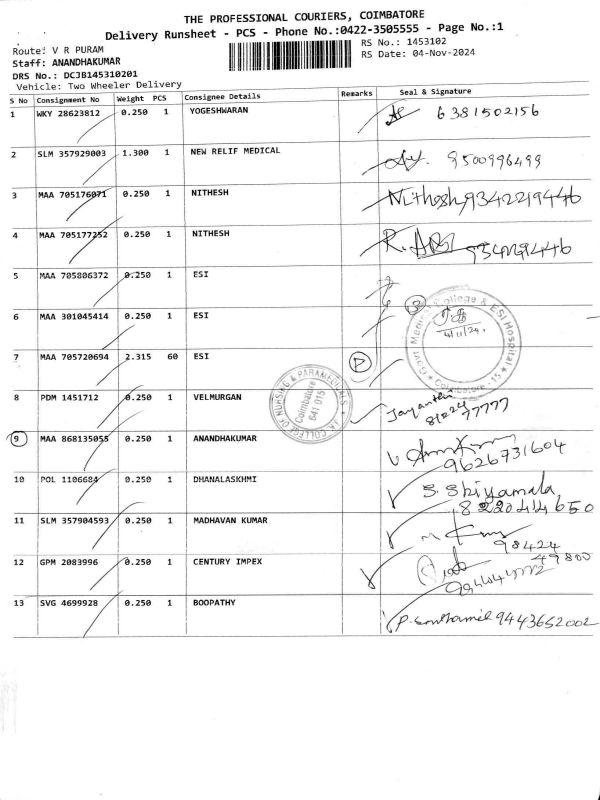 THE PROFESSIONAL COURIERS, COIMBATORE
Delivery Runsheet - PCS - Phone No.:0422-3505555 - Page No.:1
Route: V R PURAM
RS No.: 1453102
Staff: ANANDHAKUMAR
RS Date: 04-Nov-2024
DRS No.: DCJB145310201
Vehicle: Two Wheeler Delivery
S No Consignment No Weight PCS Consignee Details Remarks Seal & Signature
1 WKY 28623812 0.250 1 YOGESHWARAN 6381502156
2 SLM 357929003 1.300 1 NEW RELIF MEDICAL 9500996499
3 MAA 705176071 0.250 1 NITHESH Nithesh 9342219446
4 MAA 705177252 0.250 1 NITHESH
5 MAA 705806372 0.250 1 ESI
6 MAA 301045414 0.250 1 ESI
Medical College & ESI Hospital
4/11/24
Coimbatore - 15
7 MAA 705720694 2.315 60 ESI P
COLLEGE OF NURSING & PARAMEDICALS
Coimbatore
641 015
8 PDM 1451712 0.250 1 VELMURGAN Jayanthi
77777
9 MAA 868135055 0.250 1 ANANDHAKUMAR
9626731604
10 POL 1106684 0.250 1 DHANALASKHMI S. Shiyamala
8220414650
11 SLM 357904593 0.250 1 MADHAVAN KUMAR
98424
49800
12 GPM 2083996 0.250 1 CENTURY IMPEX
13 SVG 4699928 0.250 1 BOOPATHY 9443652002